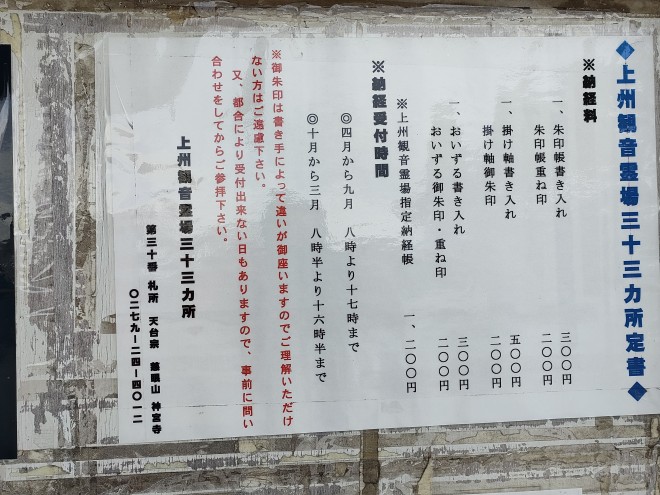 ◆上州観音霊場三十三カ所定書◆
※納経料
一、朱印帳書き入れ 三〇〇円
朱印帳重ね印 二〇〇円
一、掛け軸書き入れ 五〇〇円
掛け軸御朱印 二〇〇円
一、おいずる書き入れ 三〇〇円
おいずる御朱印・重ね印 二〇〇円
※上州観音霊場指定納経帳 一、二〇〇円
※納経受付時間
◎四月から九月 八時より十七時まで
◎十月から三月 八時半より十六時半まで
※御朱印は書き手によって違いが御座いますのでご理解いただけ
ない方はご遠慮下さい。
又、都合により受付出来ない日もありますので、事前に問い
合わせをしてからご参拝下さい。
上州観音霊場三十三カ所
第三十番 札所 天台宗 慈眼山 神宮寺
〇二七九−二四−四〇一二